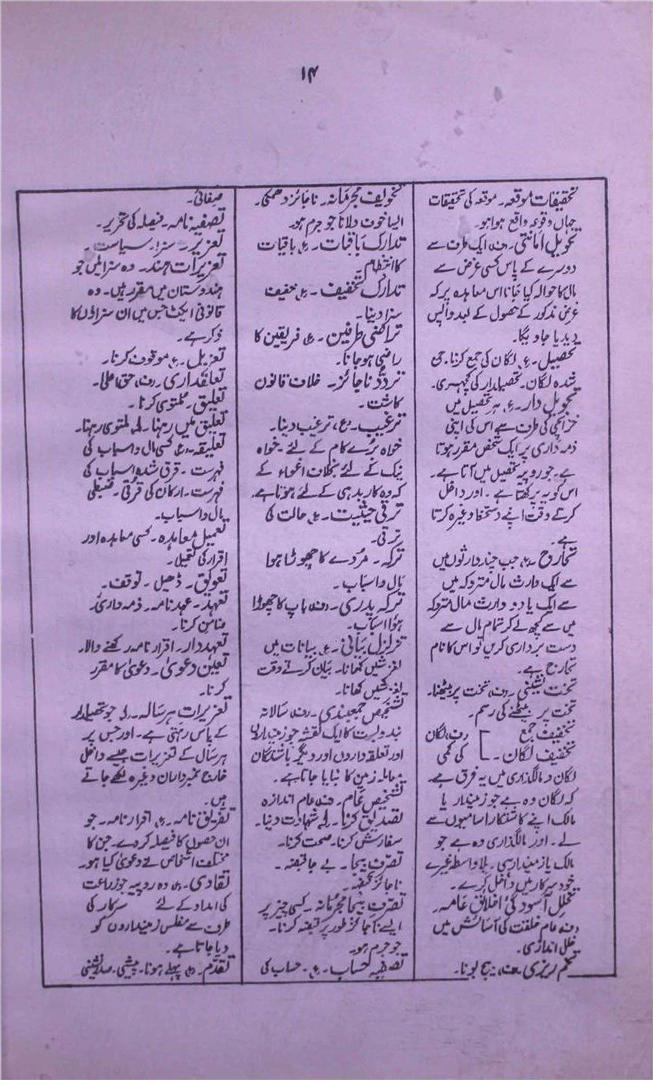 ۱۴
تحقیقات موقعہ۔ موقعہ کی تحقیقات
جہاں وقوعہ واقع ہوا ہو۔
تحویل امانتی۔ ایک طرف سے
دوسرے کے پاس کسی غرض سے
مال کا حوالہ کیا جانا اس معاہدہ پر کہ
غرض مذکور کے حصول کے بعد واپس
دیدیا جاویگا۔
تحصیل۔ ع، لگان کی جمع کرنا۔ جمع
شدہ لگان۔ تحصیلدار کی کچہری۔
تحویل دار۔ ع، ہر تحصیل میں
خزانچی کی طرف سے اس کی اپنی
ذمہ داری پر ایک شخص مقرر ہوتا
ہے۔ جو روپیہ تحصیل میں آتا ہے۔
اس کو پرکھتا ہے۔ اور داخل
کرتے وقت اپنے دستخط وغیرہ کرتا
ہے۔
تخارج۔ ع، جب چند وارثوں میں
سے ایک وارث مال متروکہ میں
سے ایک یا دو وارث مال متروکہ
میں سے کچھ لے کر تمام مال سے
دست برداری کریں تو اس کا نام
تخارج ہے۔
تخت نشینی۔ ف، تخت پر بیٹھنا۔
تخت پر بیٹھنے کی رسم۔
تخفیف جمع ] ف، لگان
تخفیف لگان۔ ] کی کمی
لگان و مالگذاری میں یہ فرق ہے۔
کہ لگان وہ ہے جو زمیندار یا
مالک اپنے کاشتکار اسامیوں سے
لے۔ اور مالگذاری وہ ہے جو
مالک یا زمینداری۔ بلا واسطہ غیرے
خود سرکار میں داخل کرے۔
تخلل آسودگی اخلاق عامہ۔
ف، عام خلقت کی آسائش میں
خلل اندازی۔
تخم ریزی۔ ف، بیج بونا۔
تخویف مجرمانہ۔ ناجائز دھمکی۔
ایسا خوف دلانا جو جرم ہو۔
تدارک باقیات۔ ع، باقیات
کا انتظام۔
تدارک تخفیف۔ ع، خفیف
سزا دینا۔
تراضی طرفین۔ ع، فریقین کا
راضی ہو جانا۔
تردد ناجائز۔ خلاف قانون
کاشت۔
ترغیب۔ ع، ترغیب دینا۔
خواہ برے کام کے لئے۔ خواہ
نیک کے لئے بخلاف اغواء کے
کہ وہ کار بد ہی کے لئے ہوتا ہے۔
ترقی حیثیت۔ ع، حالت کی
ترقی۔
ترکہ۔ مردے کا چھوڑا ہوا
مال و اسباب۔
ترکہ پدری۔ ف، باپ کا چھوڑا
ہوا اسباب۔
تزلزل بیانی۔ ع، بیانات میں
لغزشیں کھانا۔ بیان کرتے وقت
لغزشیں کھانا۔
تشخیص جمعبندی۔ ف، سالانہ
بندوبست کا ایک نقشہ جو زمینداروں
اور تعلقہ داروں اور دیگر باشندگان
زمین کا بنایا جاتا ہے۔
تشخیص عام۔ ف، عام اندازہ
تصدیق کرنا۔ شہادت دینا۔
سفارش کرنا۔ صحت کرنا۔
تصرف بیجا۔ بے جا قبضہ۔
ناجائز قبضہ۔
تصرف بیجا مجرمانہ۔ کسی چیز پر
ایسے ناجائز طور پر قبضہ کرنا۔
جو جرم ہو۔
تصفیہ حساب۔ ع، حساب کی
صفائی۔
تصفیہ نامہ۔ فیصلہ کی تحریر۔
تعزیر۔ سزا۔ سیاست۔
تعزیرات ہند۔ وہ سزائیں جو
ہندوستان میں مقرر ہیں۔ وہ
قانونی ایکٹ جس میں ان سزاؤں کا
ذکر ہے۔
تعزیل۔ ع، موقوف کرنا۔
تعلقداری۔ ف، حق اعلیٰ۔
تعلیق۔ ملتوی کرنا۔
تعلیق میں رہنا۔ ملتوی رہنا۔
تعلیقہ۔ ع، کسی مال و اسباب کی
فہرست۔ قرق شدہ اسباب کی
فہرست۔ ارکان کی قرقی۔ ضبطی
مال و اسباب۔
تعمیل معاہدہ۔ کسی معاہدہ اور
اقرار کی تکمیل۔
تعویق۔ ڈھیل۔ توقف۔
تعہد۔ عہد نامہ۔ ذمہ داری۔
ضامن کرنا۔
تعہددار۔ اقرار نامہ رکھنے والا۔
تعین دعویٰ۔ دعویٰ کا مقرر
کرنا۔
تعزیرات ہر سالہ۔ جو تحصیلدار
کے پاس رہتی ہے۔ اور جس پر
ہر سال کے تعزیرات جیسے داخل
خارج نمبرداران وغیرہ لکھے جاتے
ہیں۔
تفریق نامہ۔ ع، اقرار نامہ۔ جو
ان حصوں کا فیصلہ کر دے۔ جن کا
مختلف اشخاص نے دعویٰ کیا ہو۔
تقاوی۔ ع، وہ روپیہ جو زراعت
کی امداد کے لئے سرکار کی
طرف سے مفلس زمینداروں کو
دیا جاتا ہے۔
تقدم۔ ع، پہلے ہونا۔ پیشی۔ صدر نشینی